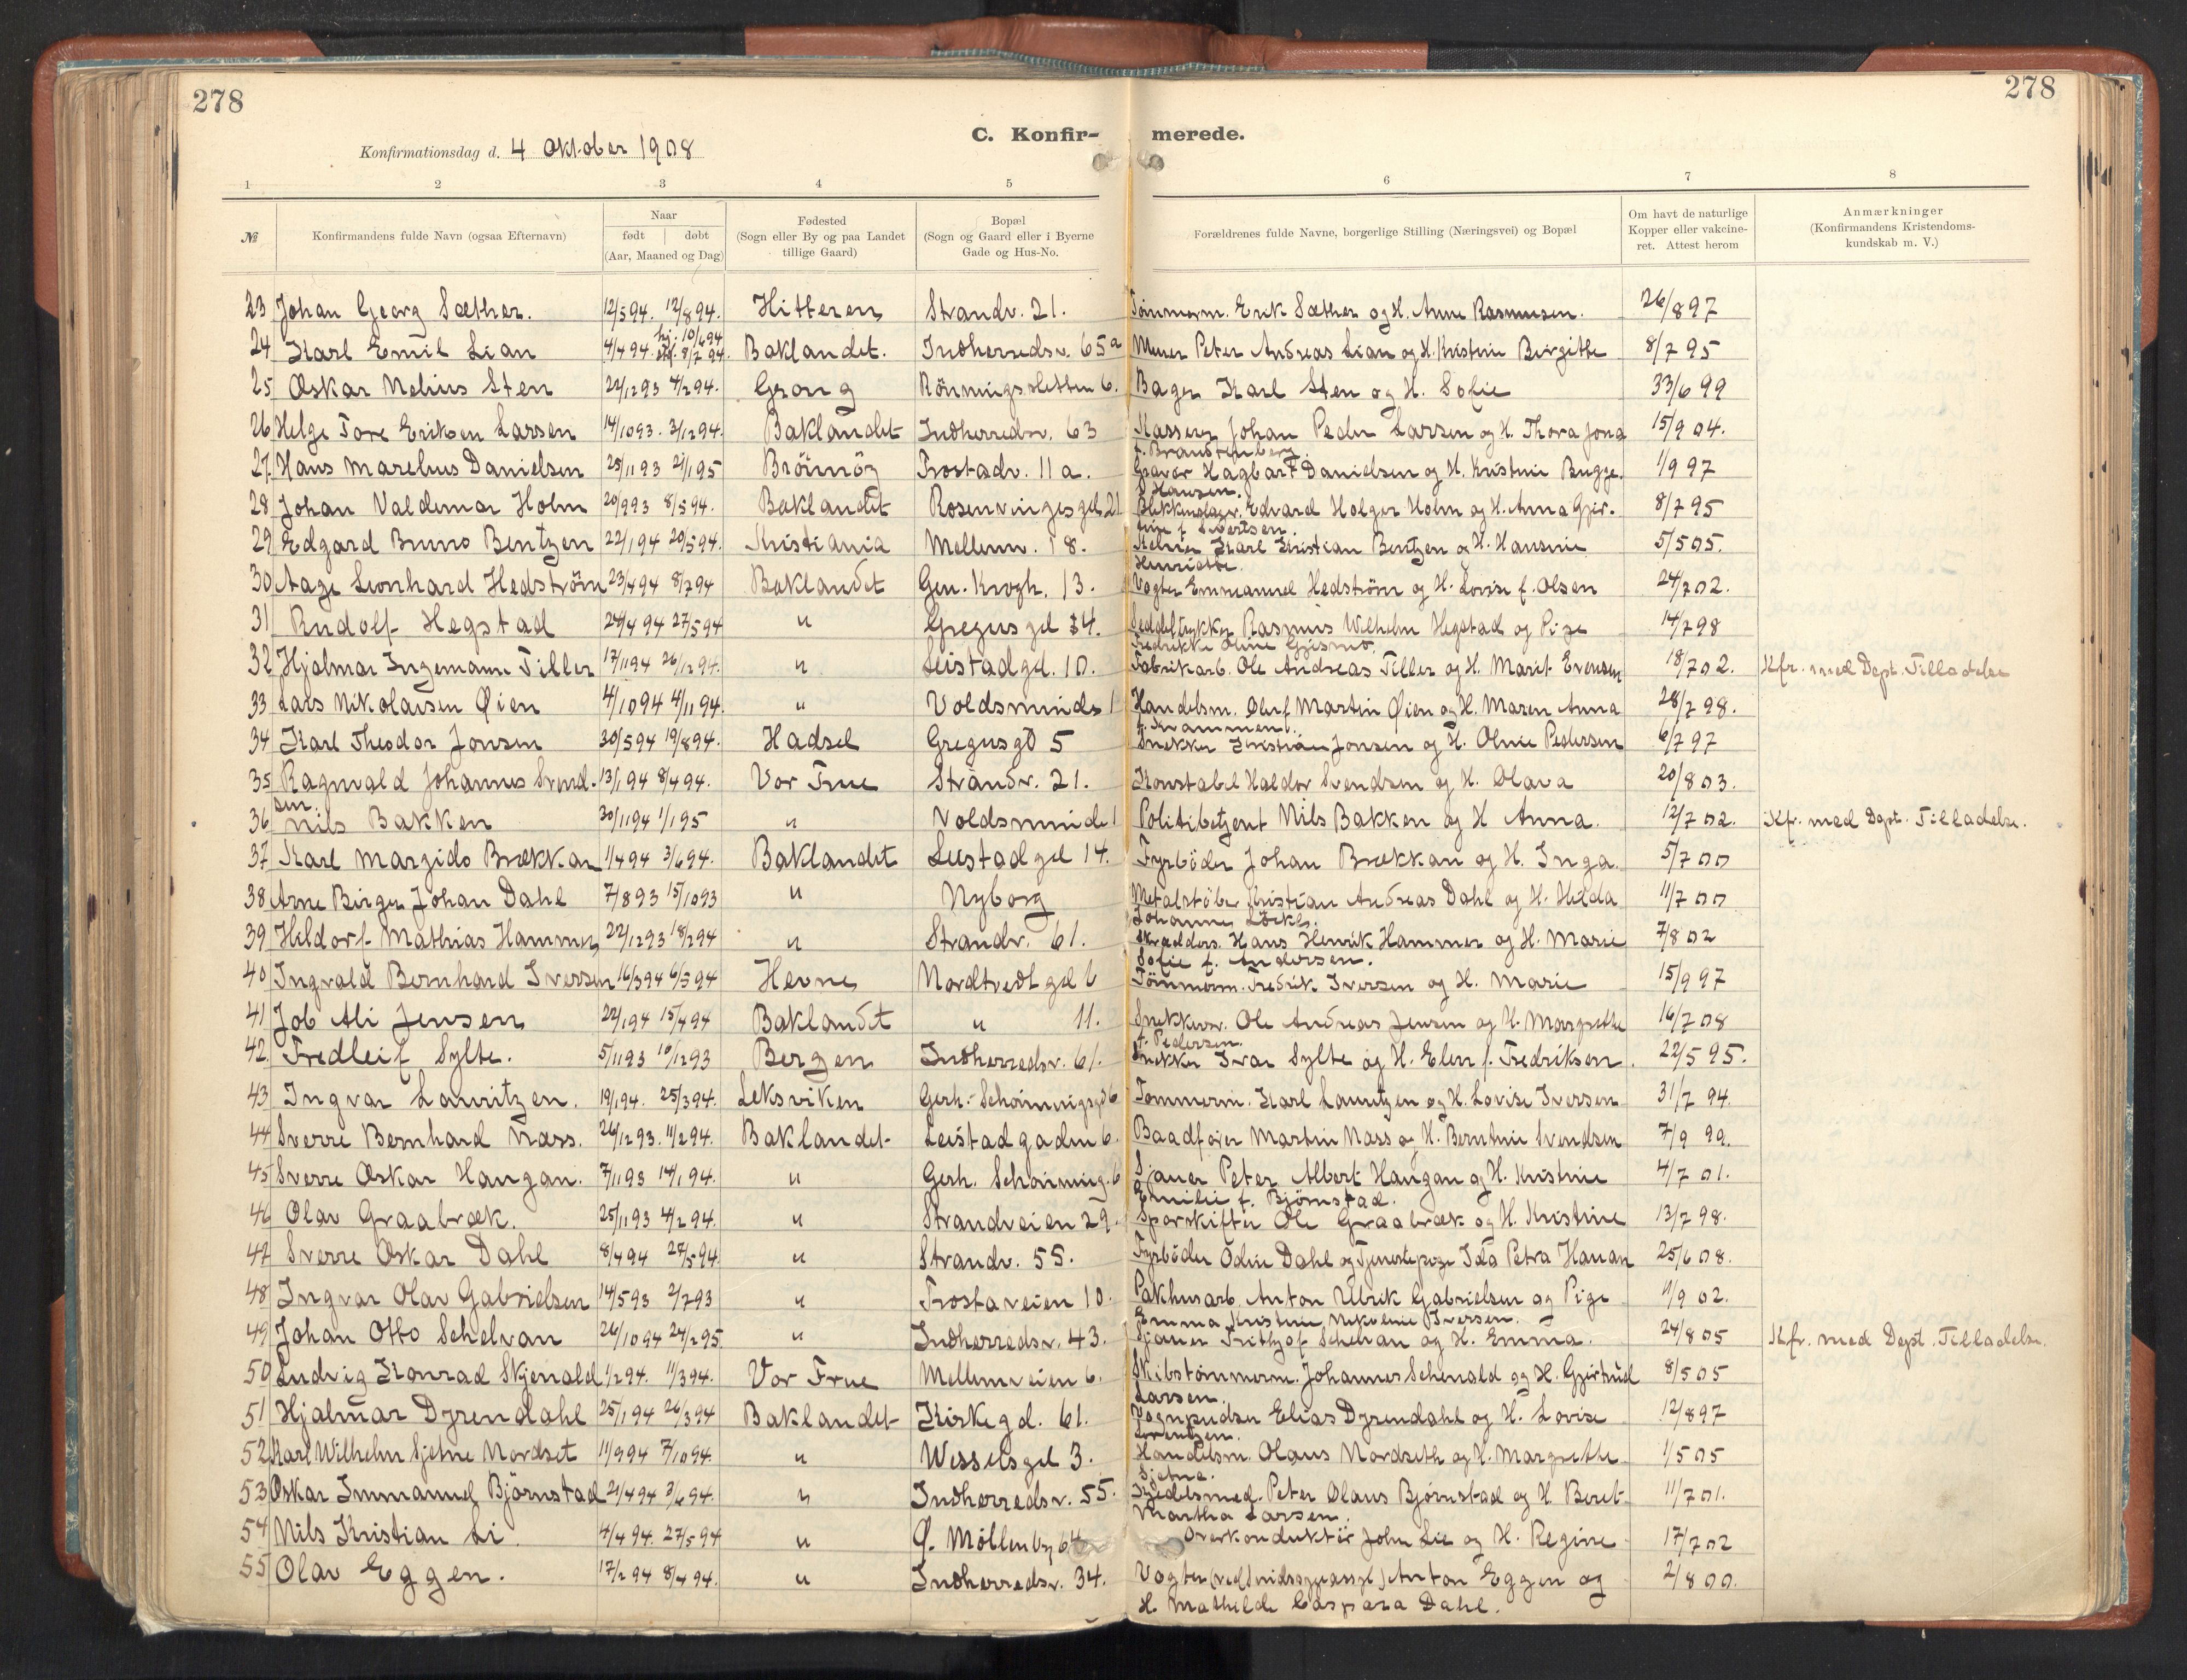 278
278
C. Konfir-
merede.
Konfirmationsdag d. 4 Oktober 1908
1 2 3 4 5 6 7 8
№ Konfirmandens fulde Navn (ogsaa Efternavn) Naar født døbt (Aar, Maaned og Dag) Fødested (Sogn eller By og paa Landet tillige Gaard) Bopæl (Sogn og Gaard eller i Byerne Gade og Hus-No. Forældrenes fulde Navne, borgerlige Stilling (Næringsvei) og Bopæl Om havt de naturlige Kopper eller vakcine- ret. Attest herom Anmærkninger (Konfirmandens Kristendoms- kundskab m. V.)
23 Johan Georg Sæther. 12/5 94. 12/8 94. Hitteren Strandv. 21. Tömmerm. Erik Sæther og H. Anne Rasmusen. 26/8 97
hj. 10/6 94
24 Karl Emil Lian 4/4 94. std. 8/7 94. Baklandet. Indherredsv. 65a Murer Peter Andreas Lian og H. Kristine Birgitte 8/7 95
25 Oskar Melius Sten 22/12 93 4/2 94. Grong Rönningsletten 6. Bager Karl Sten og H. Sofie 33/6 99
26 Helge Tore Eriksen Larsen 14/10 93. 3/12 94. Baklandet Indherredsv. 63 Kasserer Johan Peder Larsen og H. Thora Jona
f. Brandtenberg.
15/9 04.
27 Hans Marelius Danielsen 25/11 93 21/1 95 Brönnöy Frostadv. 11 a. Gravör Hagbart Danielsen og H. Kristine Bugge
Hansen.
1/9 97
28 Johan Valdemar Holm 20/9 93 8/5 94. Baklandet Rosenvingesgd. 21 Blikkenslager. Edvard Holger Holm og H. Anna Gjer-
tine f. Sivertsen.
8/7 95
29 Edgard Bruno Bentzen 22/1 94 20/5 94. Kristiania Mellemv. 18. Kelner Karl Kristian Bentzen og H. Hansine
Henriette.
5/5 05.
30 Aage Leonhard Hedström 23/4 94 8/7 94 Baklandet Gen. Krogh. 13. Vogter Emmanuel Hedström og H. Lovise f. Olsen 24/7 02.
31 Rudolf Hegstad 24/4 94 27/5 94 " Gregusgd 34. Seddeltrykker Rasmus Wilhelm Hegstad og Pige
Fredrikke Oline Gjesmo.
14/7 98
32 Hjalmar Ingemann Tiller 17/11 94 26/12 94. " Leistadgd. 10. Fabrikarb. Ole Andreas Tiller og H. Marit Evensen 18/7 02. Kfr. med Dept. Tilladelse
33 Lars Nikolaisen Øien 4/10 94 4/11 94. " Voldsminde 1 Handelsm. Oluf Martin Øien og H. Maren Anna
f. Krammen.
28/7 98.
34 Karl Theodor Jonsen 30/5 94 19/8 94. Hadsel Gregusgd 5 Snekker Kristian Jonsen og H. Oline Pedersen 6/7 97
35 Ragnvald Johannes Svend-
sen.
13/1 94 8/4 94. Vor Frue Strandv. 21. Konstabel Haldor Svendsen og H. Olava 20/8 03.
36 Nils Bakken 30/11 94 1/1 95 " Voldsminde 1 Politibetjent Nils Bakken og H Anna. 12/7 02. Kfr. med Dept. Tilladelse.
37 Karl Margido Brækkan 1/4 94 3/6 94. Baklandet Leistadgd 14. Fyrböder Johan Brækkan og H. Inga. 5/7 00
38 Arne Birger Johan Dahl 7/8 93 15/10 93 " Nyborg Metalstöber Kristian Andreas Dahl og H. Hilda
Johanne Löckl.
11/7 00
39 Hildorf Mathias Hammer 22/12 93 18/2 94 " Strandv. 61. Skrædders. Hans Henrik Hammer og H. Marie
Sofie f. Andersen.
7/8 02
40 Ingvald Bernhard Iversen 16/3 94 6/5 94 Hevne Nordtvedtgd 6 Tömmerm. Fredrik Iversen og H. Marie 15/9 97
41 Job Ali Jensen 22/1 94 15/4 94 Baklandet " 11. Snekkersv. Ole Andreas Jensen og H. Margrethe
f. Pedersen.
16/7 08
42. Fredleif Sylte. 5/11 93 10/12 93 Bergen Indherredsv. 61. Snekker Ivar Sylte og H. Elen f. Fredriksen. 22/5 95.
43 Ingvar Lauritzen. 19/1 94. 25/3 94. Leksviken Gerh. Schönningsgd 6 Tommerm. Karl Lauritzen og H. Lovise Iversen 31/7 94.
44 Sverre Bernhard Næss. 26/12 93. 11/2 94. Baklandet Leistadgaden 6. Baadfører Martin Næss og H. Berntine Svendsen 7/9 99.
45 Sverre Oskar Haugan. 7/11 93 14/1 94. " Gerh. Schönning. 6 Sjauer Peter Albert Haugan og H. Kristine
Emilie f. Bjørnstad.
4/7 01.
46 Olav Graabræk. 25/11 93 4/2 94. " Strandveien 29. Sporskifter Ole Graabræk og H. Kristine 13/7 98.
47 Sverre Oskar Dahl 8/4 94 27/5 94. " Strandv. 55. Fyrböder Odin Dahl og Tjenestepige Ida Petra Hanan 25/6 08.
48 Ingvar Olav Gabrielsen 14/5 93 2/7 93 " Frostaveien 10. Pakhusarb. Anton Ulrik Gabrielsen og Pige
Emma Kristine Nikoline Iversen.
9/9 02.
49 Johan Otto Schelvan 26/10 94 24/2 95. " Indherredsv. 43. Sjauer Frithjof Schelvan og H. Emma. 24/8 05 Kfr. med Dept. Tilladelse.
50 Ludvig Konrad Skjenald 1/2 94. 11/3 94. Vor Frue Mellemveien 6. Skibstömmerm. Johannes Schenald og H. Gjertrud
Larsen.
8/5 05
51 Hjalmar Dyrendahl 25/1 94 26/3 94 Baklandet Kirkegd. 61. Vognpudser Elias Dyrendahl og H. Lovise
Lorentzen.
12/8 97
52 Karl Wilhelm Sjetne Nordset 11/9 94 7/10 94. " Wesselsgd 3. Handelsm. Olaus Nordseth og H. Margrethe
Sjetne.
1/5 05
53 Oskar Immanuel Björnstad 21/4 94 3/6 94. " Indherredsv. 55. Gjedelsmed. Peter Olaus Bjørnstad og H. Beret
Martha Larsen.
11/7 01.
54 Nils Kristian Li. 4/4 94. 27/5 94 " Ø. Möllenby 64 Overkonduktör John Lie og H. Regine 17/7 02
55 Olav Eggen. 17/2 94 8/4 94. " Indherredsv. 34. Vogter Anton Eggen og
H. Mathilde Caspara Dahl.
2/8 00.